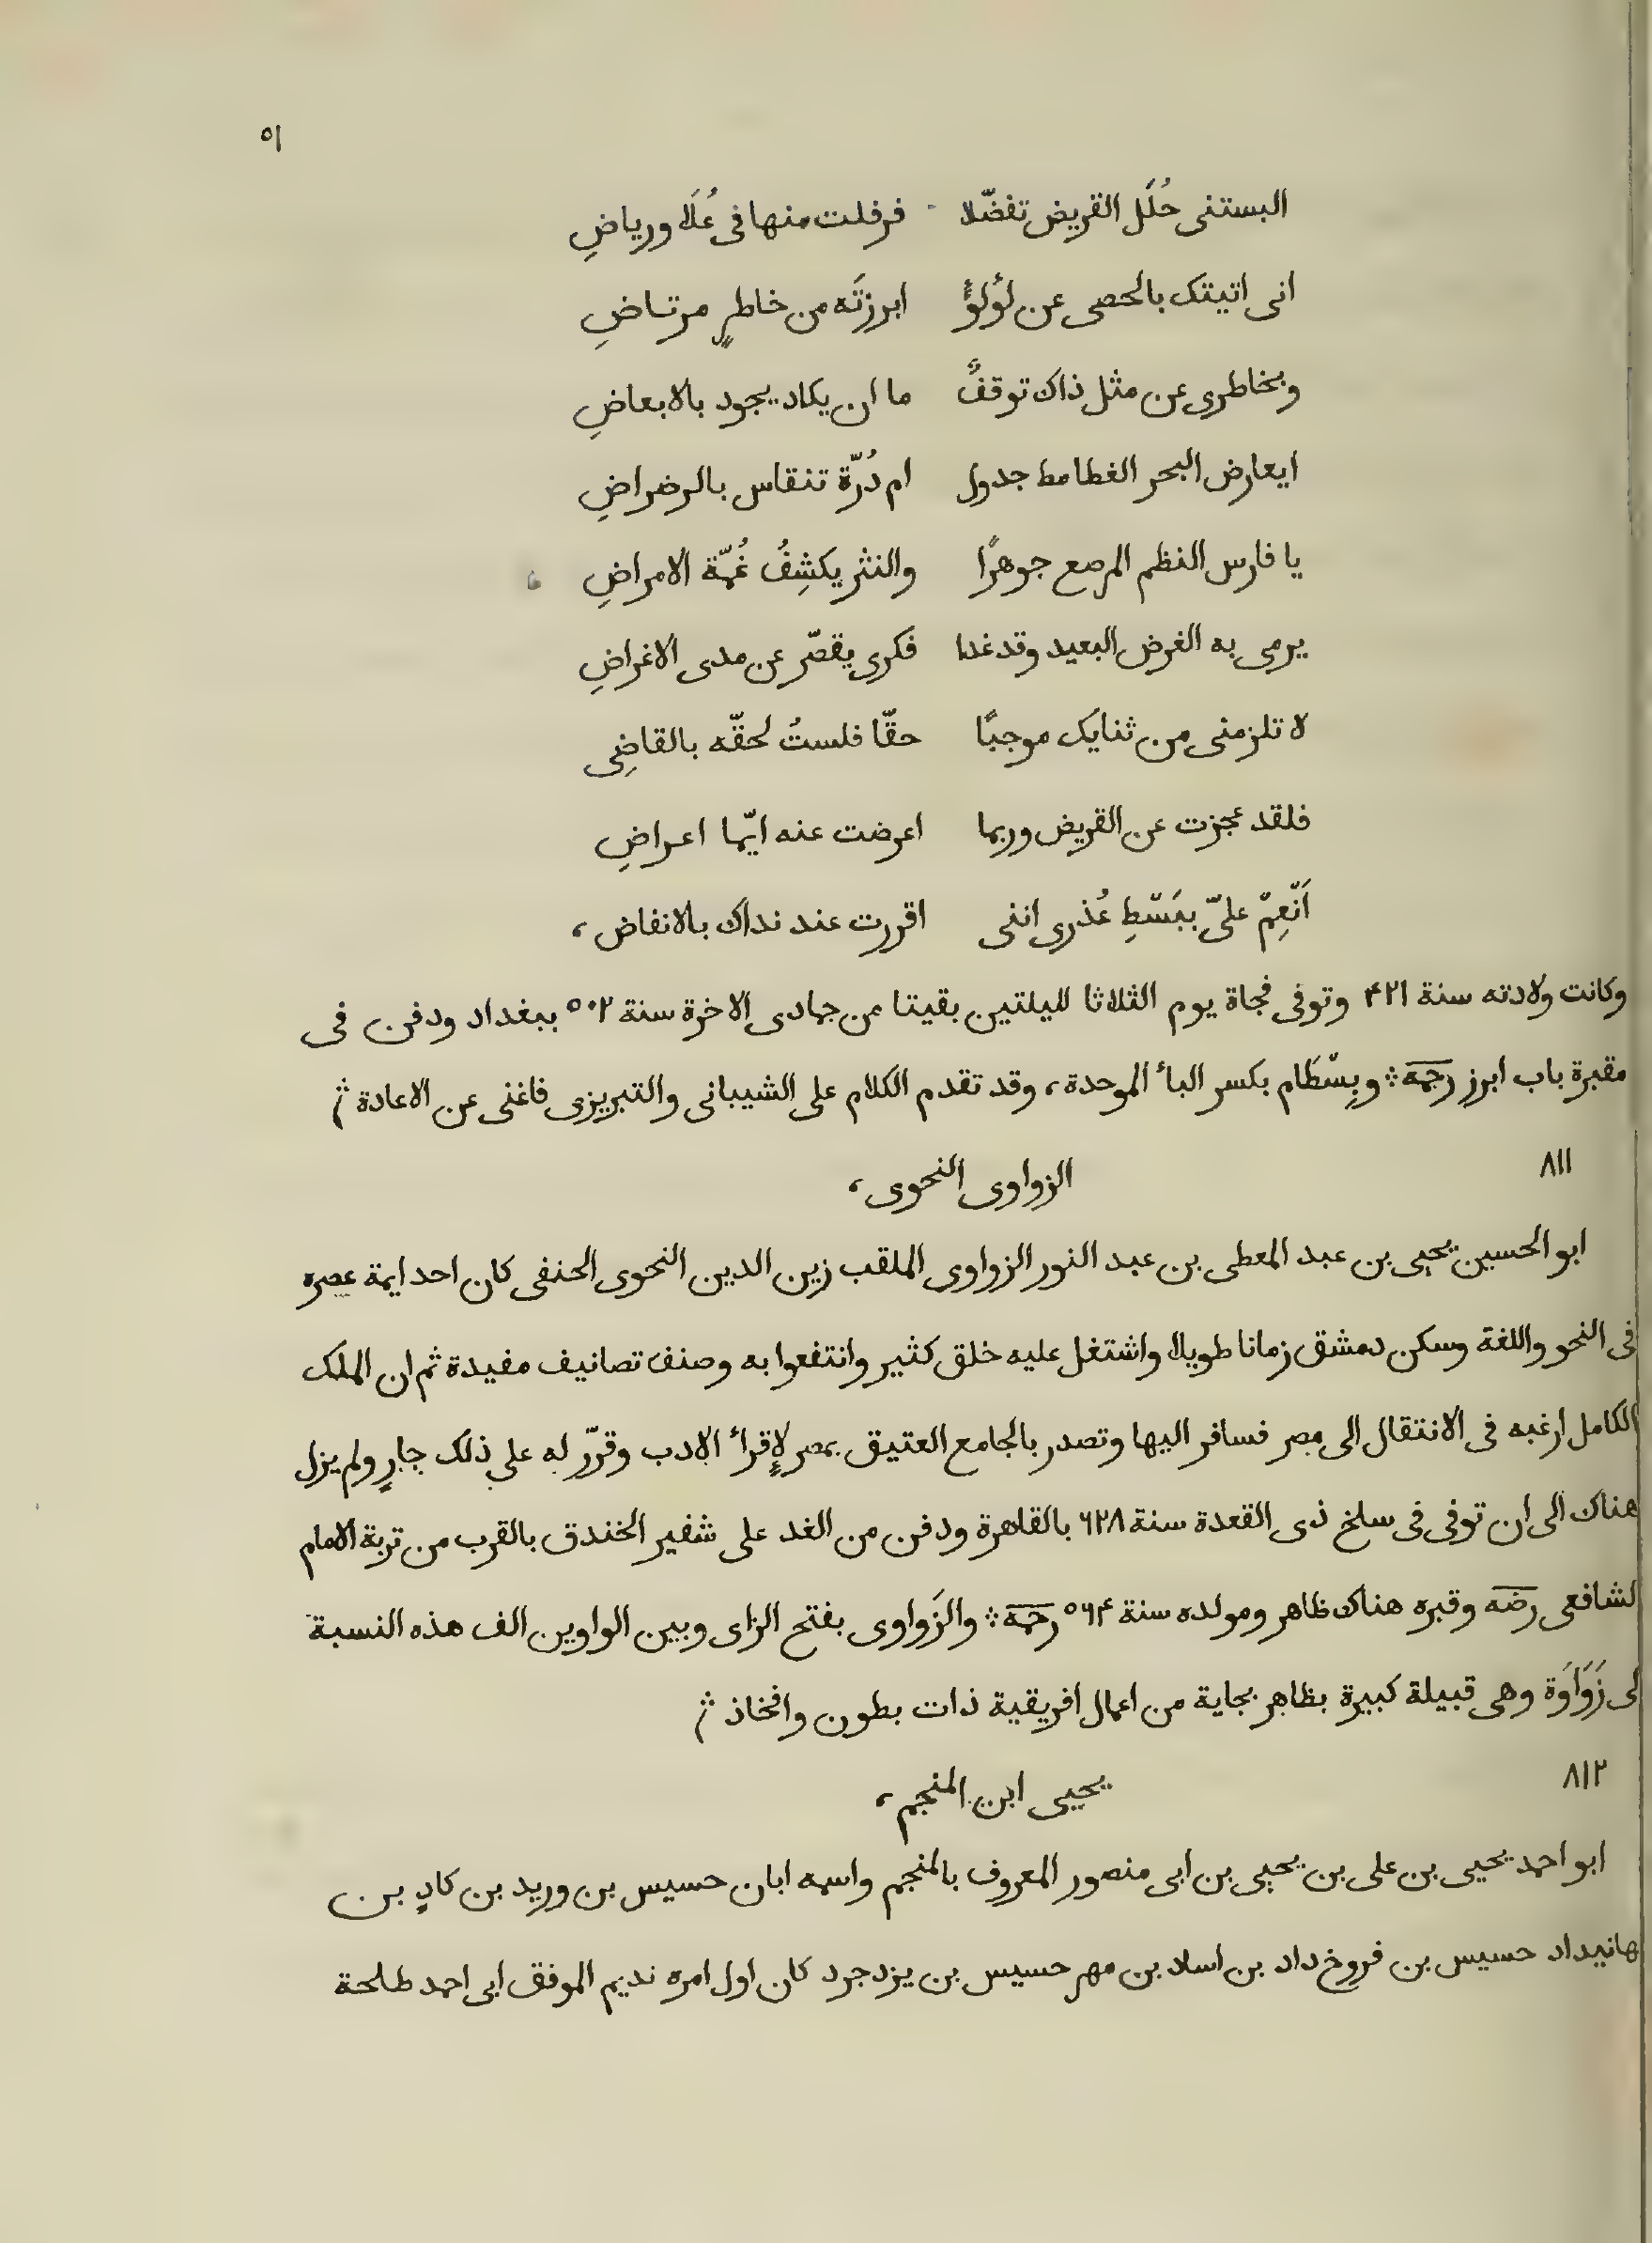 ٥١
البستنى حُلَل القريض تفضّلا فرفلت منها فى عُلَا ورياضِ
انى اتيتك بالحصى عن لؤلؤٍ ابرزتَه من خاطرٍ مرتاضِ
وبخاطرى عن مثل ذاك توقفٌ ما ان يكاد يجود بالابعاضِ
ايعارض البحر الغطامط جدول ام دُرّة تنقاس بالرضراضِ
يا فارس النظم المرصع جوهرًا والنثر يكشِفُ غُمّة الامراضِ
يرمى به الغرض البعيد وقد غدا فكرى يقصّر عن مدى الاغراضِ
لا تلزمنى من ثنايك موجبًا حقّا فلستُ لحقّه بالقاضِى
فلقد عجزت عن القريض وربما اعرضت عنه ايّما اعراضِ
اَنْعِمْ علىّ ببَسْطِ عُذرى اننى اقررت عند نداك بالانفاض ،
وكانت ولادته سنة ۴۲۱ وتوفى فجاة يوم الثلاثا لليلتين بقيتا من جمادى الاخرة سنة ٥٠٢ ببغداد ودفن فى
مقبرة باب ابرز رحمه ؞ وبِسْطَام بكسر البأ الموحدة ، وقد تقدم الكلام على الشيبانى والتبريزى فاغنى عن الاعادة ؞
٨١١
الزواوى النحوى ،
ابو الحسين يحيى بن عبد المعطى بن عبد النور الزواوى الملقب زين الدين النحوى الحنفى كان احد ايمة عصره
فى النحو واللغة وسكن دمشق زمانا طويلا واشتغل عليه خلق كثير وانتفعوا به وصنف تصانيف مفيدة ثم ان الملك
الكامل ارغبه فى الانتقال الى مصر فسافر اليها وتصدر بالجامع العتيق بمصر لإقرأ الادب وقرّر له على ذلك جارٍ ولم يزل
هناك الى ان توفى فى سلخ ذى القعدة سنة ٦٢٨ بالقاهرة ودفن من الغد على شفير الخندق بالقرب من تربة الامام
لشافعى رضه وقبره هناك ظاهر ومولده سنة ٥٦۴ رحمه ؞ والزَواوى بفتح الزاى وبين الواوين الف هذه النسبة
لى زَوَاوَة وهى قبيلة كبيرة بظاهر بجاية من اعمال افريقية ذات بطون وافخاذ ؞
٨١٢
يحيى ابن المنجم ،
ابو احمد يحيى بن على بن يحيى بن ابى منصور المعروف بالمنجم واسمه ابان حسيس بن وريد بن كادٍ بن
هانيداد حسيس بن فروخ داد بن اساد بن مهر حسيس بن يزدجرد كان اول امره نديم الموفق ابى احمد طلحة